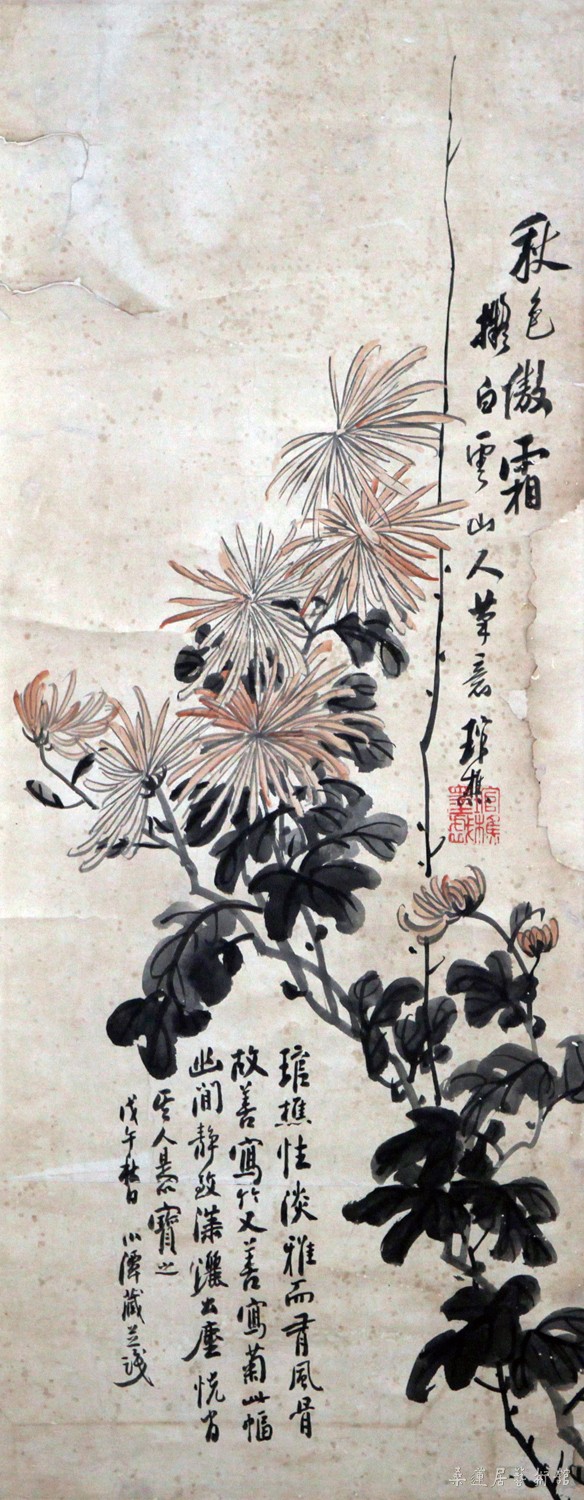 秋色傲霜
擬白雲山人筆意 琯樵
琯樵墨戲
琯樵性淡雅而有風骨
故善寫竹又善寫菊此幅
幽閒靜致瀟灑出塵恍肖
其人是可寶之
戊午秋日 小潭藏並識
桑蓮居藝術館